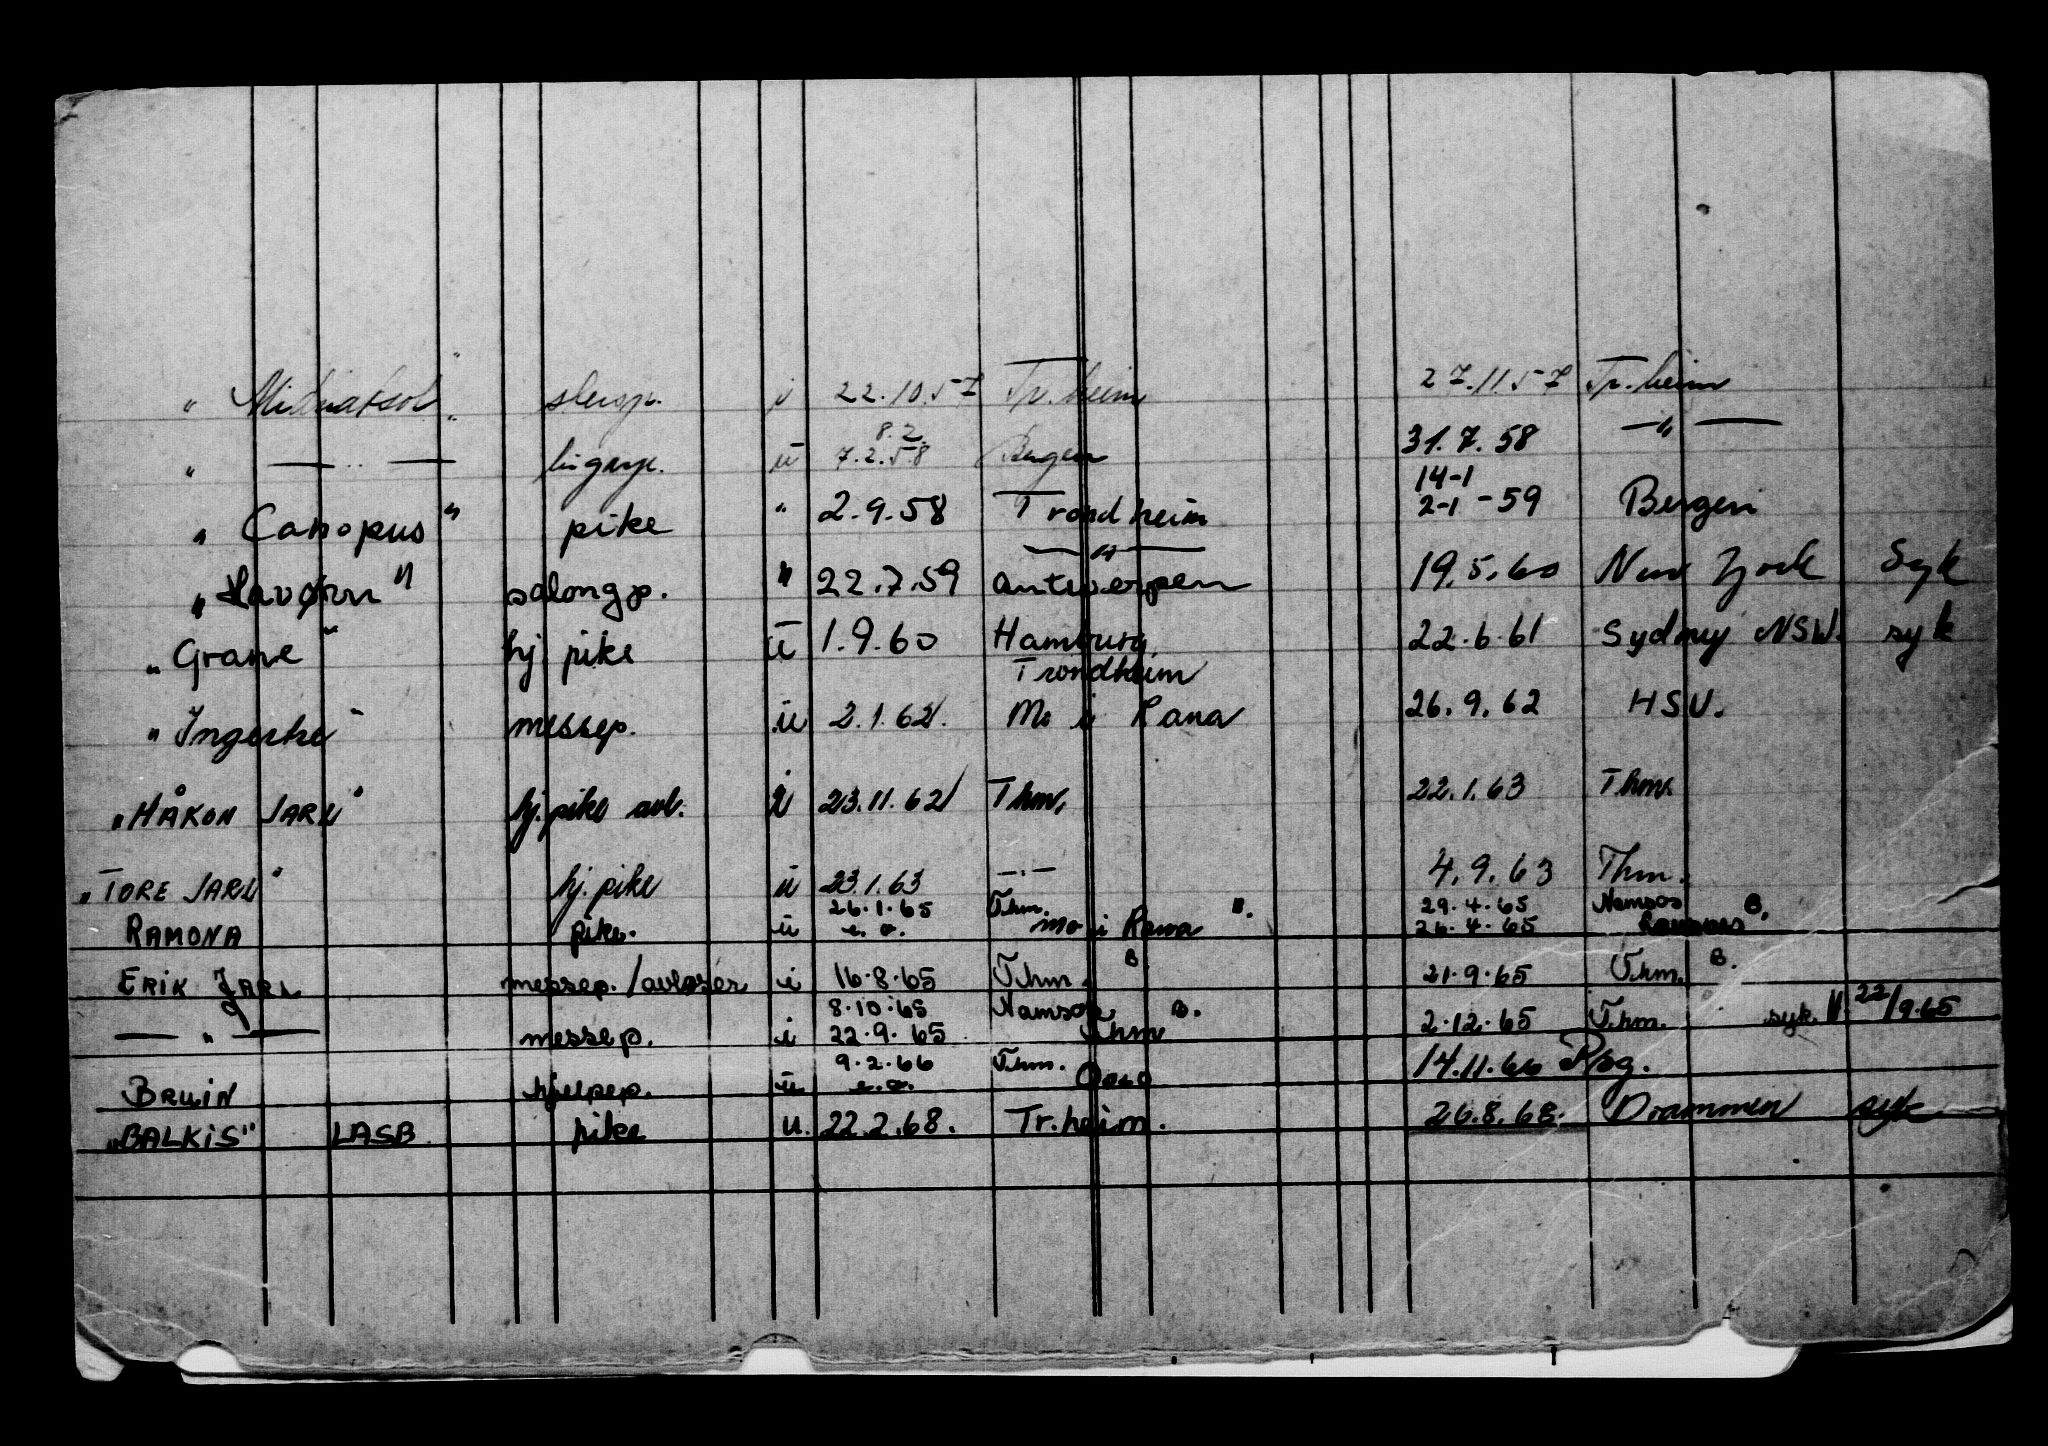 " Midnatsol " i 22.10.57 Tr.heim 27.11.57 Tr.heim
8.2.
" — " — ü 7.2.58 Bergen 31.7.58 — " —
14-1
" Canopus " pike " 2.9.58 Trondheim 2-1-59 Bergen
— " —
" Havørn " salongp. " 22.7.59 Antwerpen 19.5.60 New York Syk
" Grane " hj pike ü 1.9.60 Hamburg 22.6.61 Sydney NSW. syk
Trondheim
messep. ü 2.1.62. Mo i Rana 26.9.62 HSV.
" HÅKON JARL " hj. pike avl. i 23.11.62 Thm. 22.1.63 Thm.
" TORE JARL " hj. pike ü 23.1.63 — " — 4.9.63 Thm.
26.1.65 Thm. B. 29.4.65 Namsos B.
RAMONA pike. ü Mo i Rana 26.4.65
ERIK JARL messep./avløser i 16.8.65 Thm. B. 21.9.65 Thm. B.
8.10.65 Namsos B.
— " — messep. i 22.9.65 Thm 2.12.65 Thm. syk. 22/9.65
9.2.66 Thm.
BRUIN hjelpep. ü Oslo 14.11.66
" BALKIS " LASB pike u. 22.2.68. Tr.heim. 26.8.68. Drammen syk